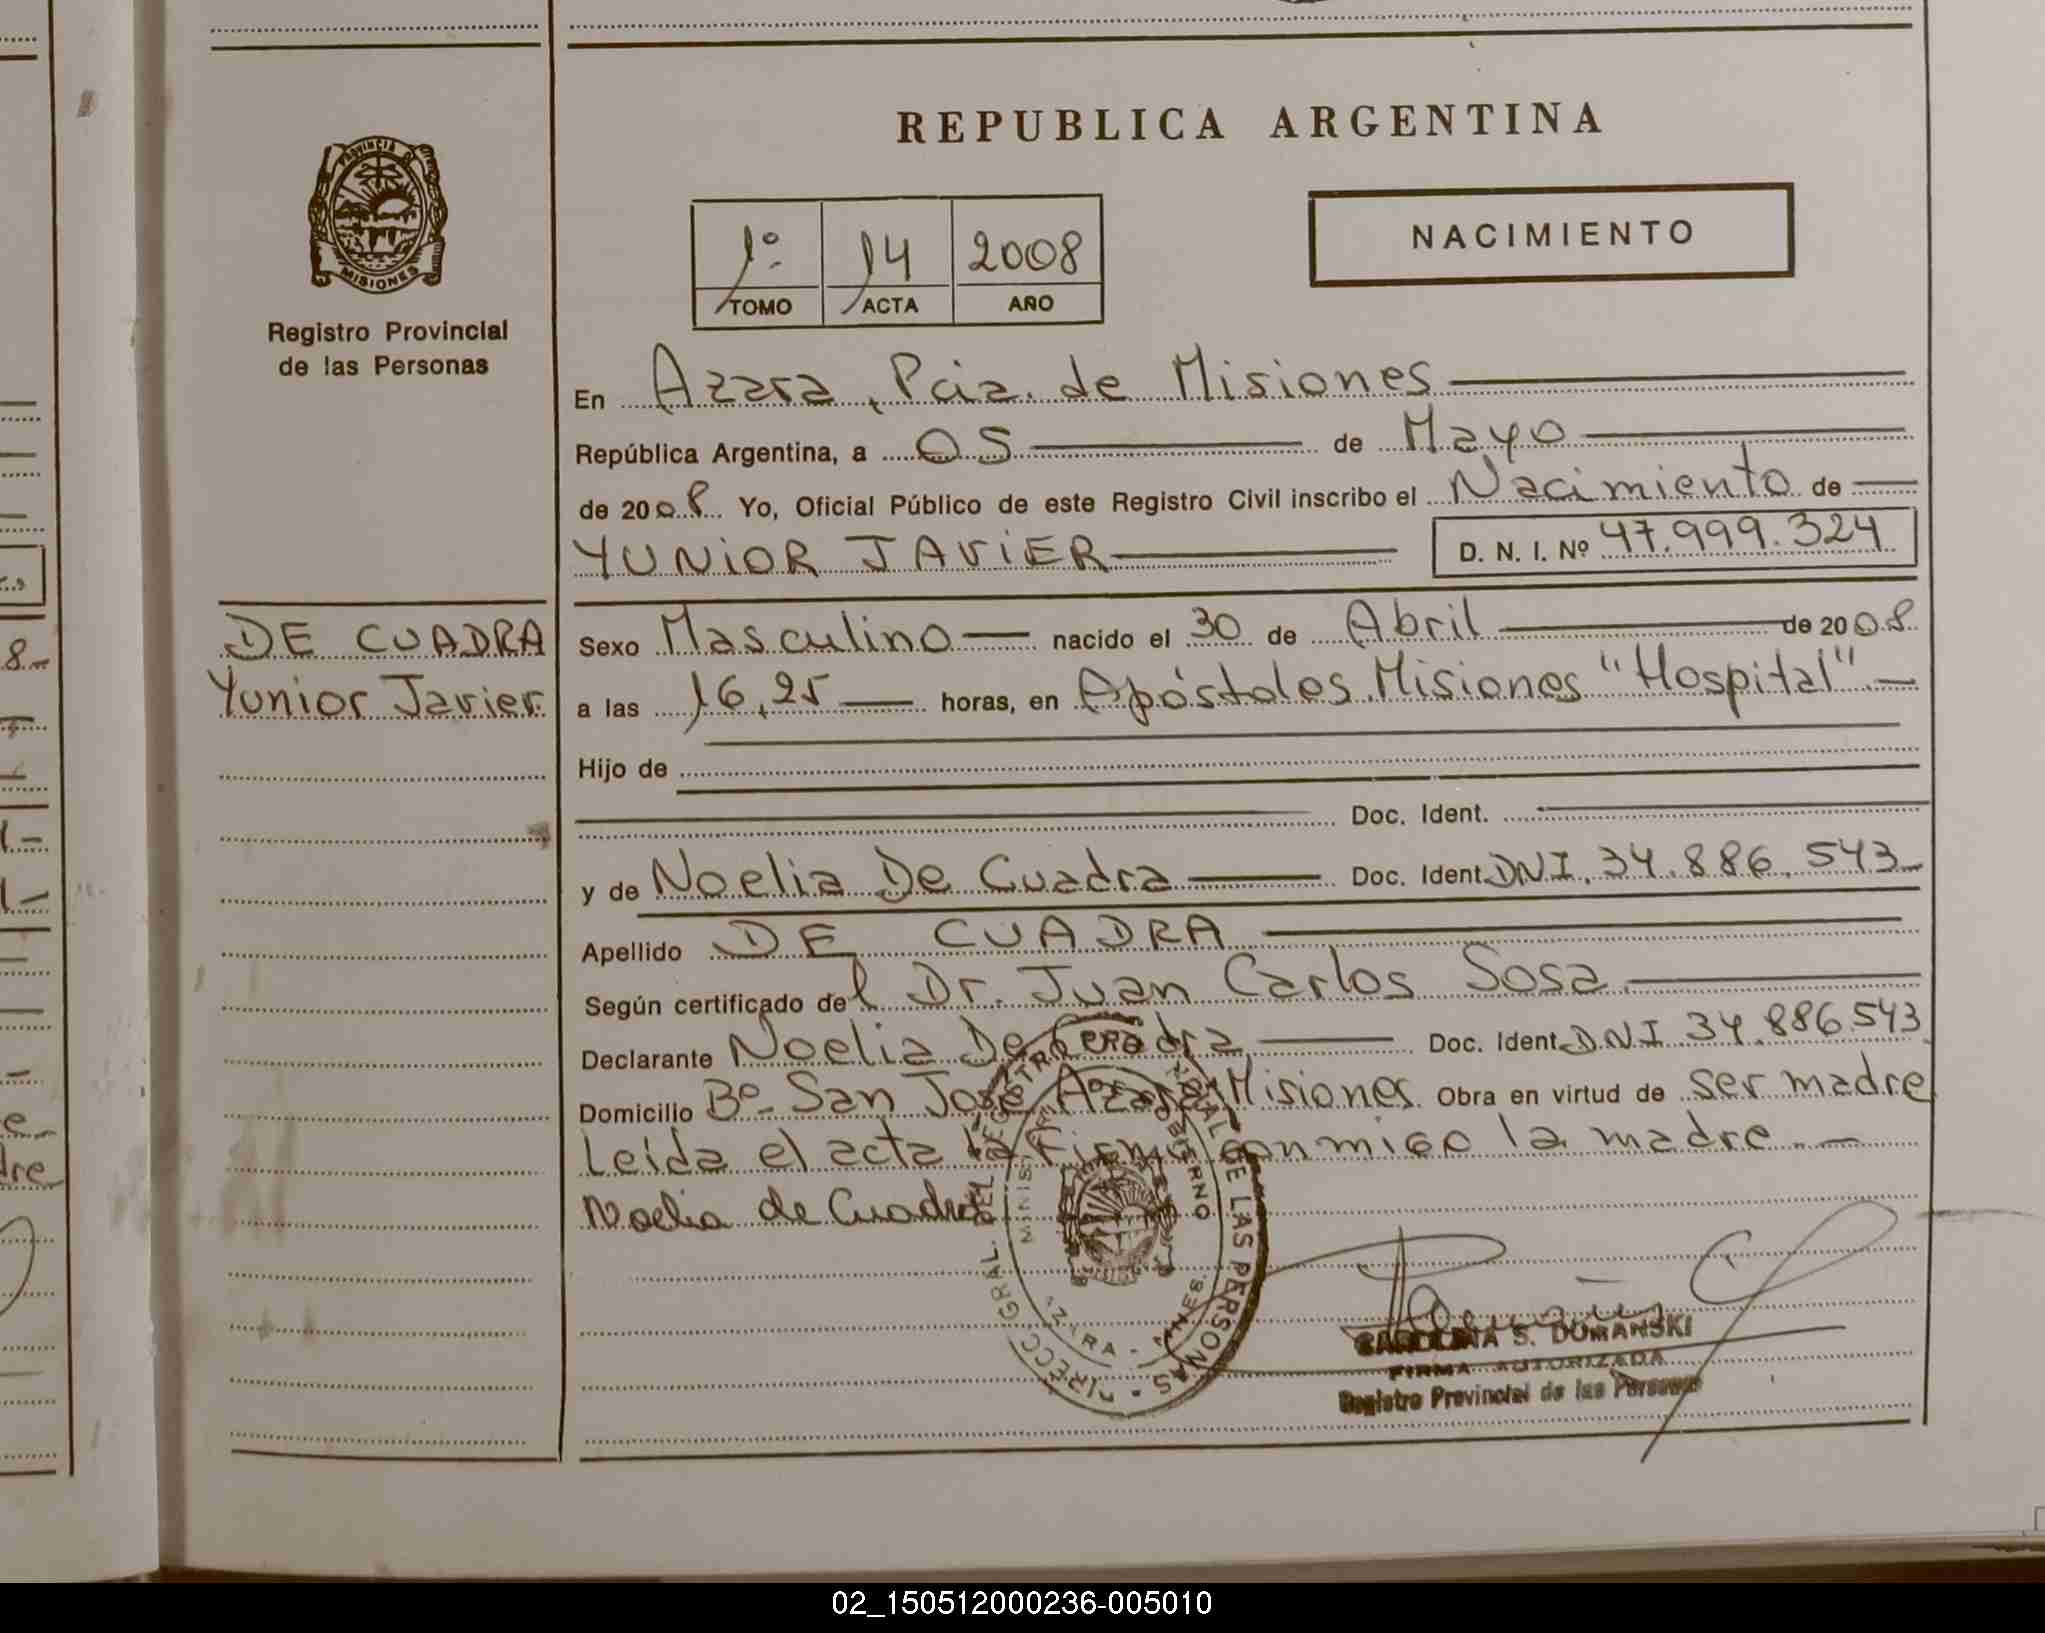 REPUBLICA ARGENTINA
PROVINCIA D
MISIONES
Registro Provincial
de las Personas
1º
14
2008
TOMO
ACTA
AÑO
NACIMIENTO
En Azara, Pcia. de Misiones
República Argentina, a 05 de Mayo
de 2008 Yo, Oficial Público de este Registro Civil inscribo el Nacimiento de
YUNIOR JAVIER D. N. I. Nº 47.999.324
DE CUADRA
Yunior Javier
Sexo Masculino nacido el 30 de Abril de 2008
a las 16,25 horas, en Apóstoles Misiones "Hospital"
Hijo de
Doc. Ident.
y de Noelia De Cuadra Doc. Ident. DNI. 34.886.543
Apellido DE CUADRA
Según certificado del Dr. Juan Carlos Sosa
Declarante Noelia De Cuadra Doc. Ident. DNI 34.886.543
Domicilio Bº San José Azara Misiones Obra en virtud de ser madre
Leída el acta la Firma conmigo la madre
Noelia de Cuadra
CAROLINA S. DOMANSKI
FIRMA AUTORIZADA
Registro Provincial de las Personas
8.-
dre
02_150512000236-005010